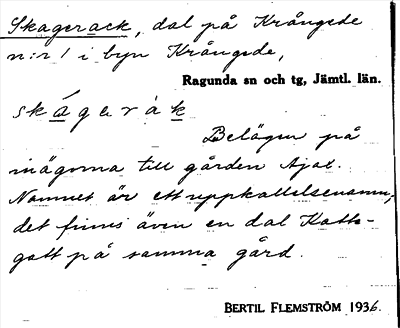 Skagerack, dal på Krångede
n:r 1 i byn Krångede,
Ragunda sn och tg, Jämtl. län.
skágeràk
Belägen på
inägorna till gården Ajal.
Namnet är ett uppkallelsenamn,
det finns även en dal Katte-
gatt på samma gård.
BERTIL FLEMSTRÖM 1936.